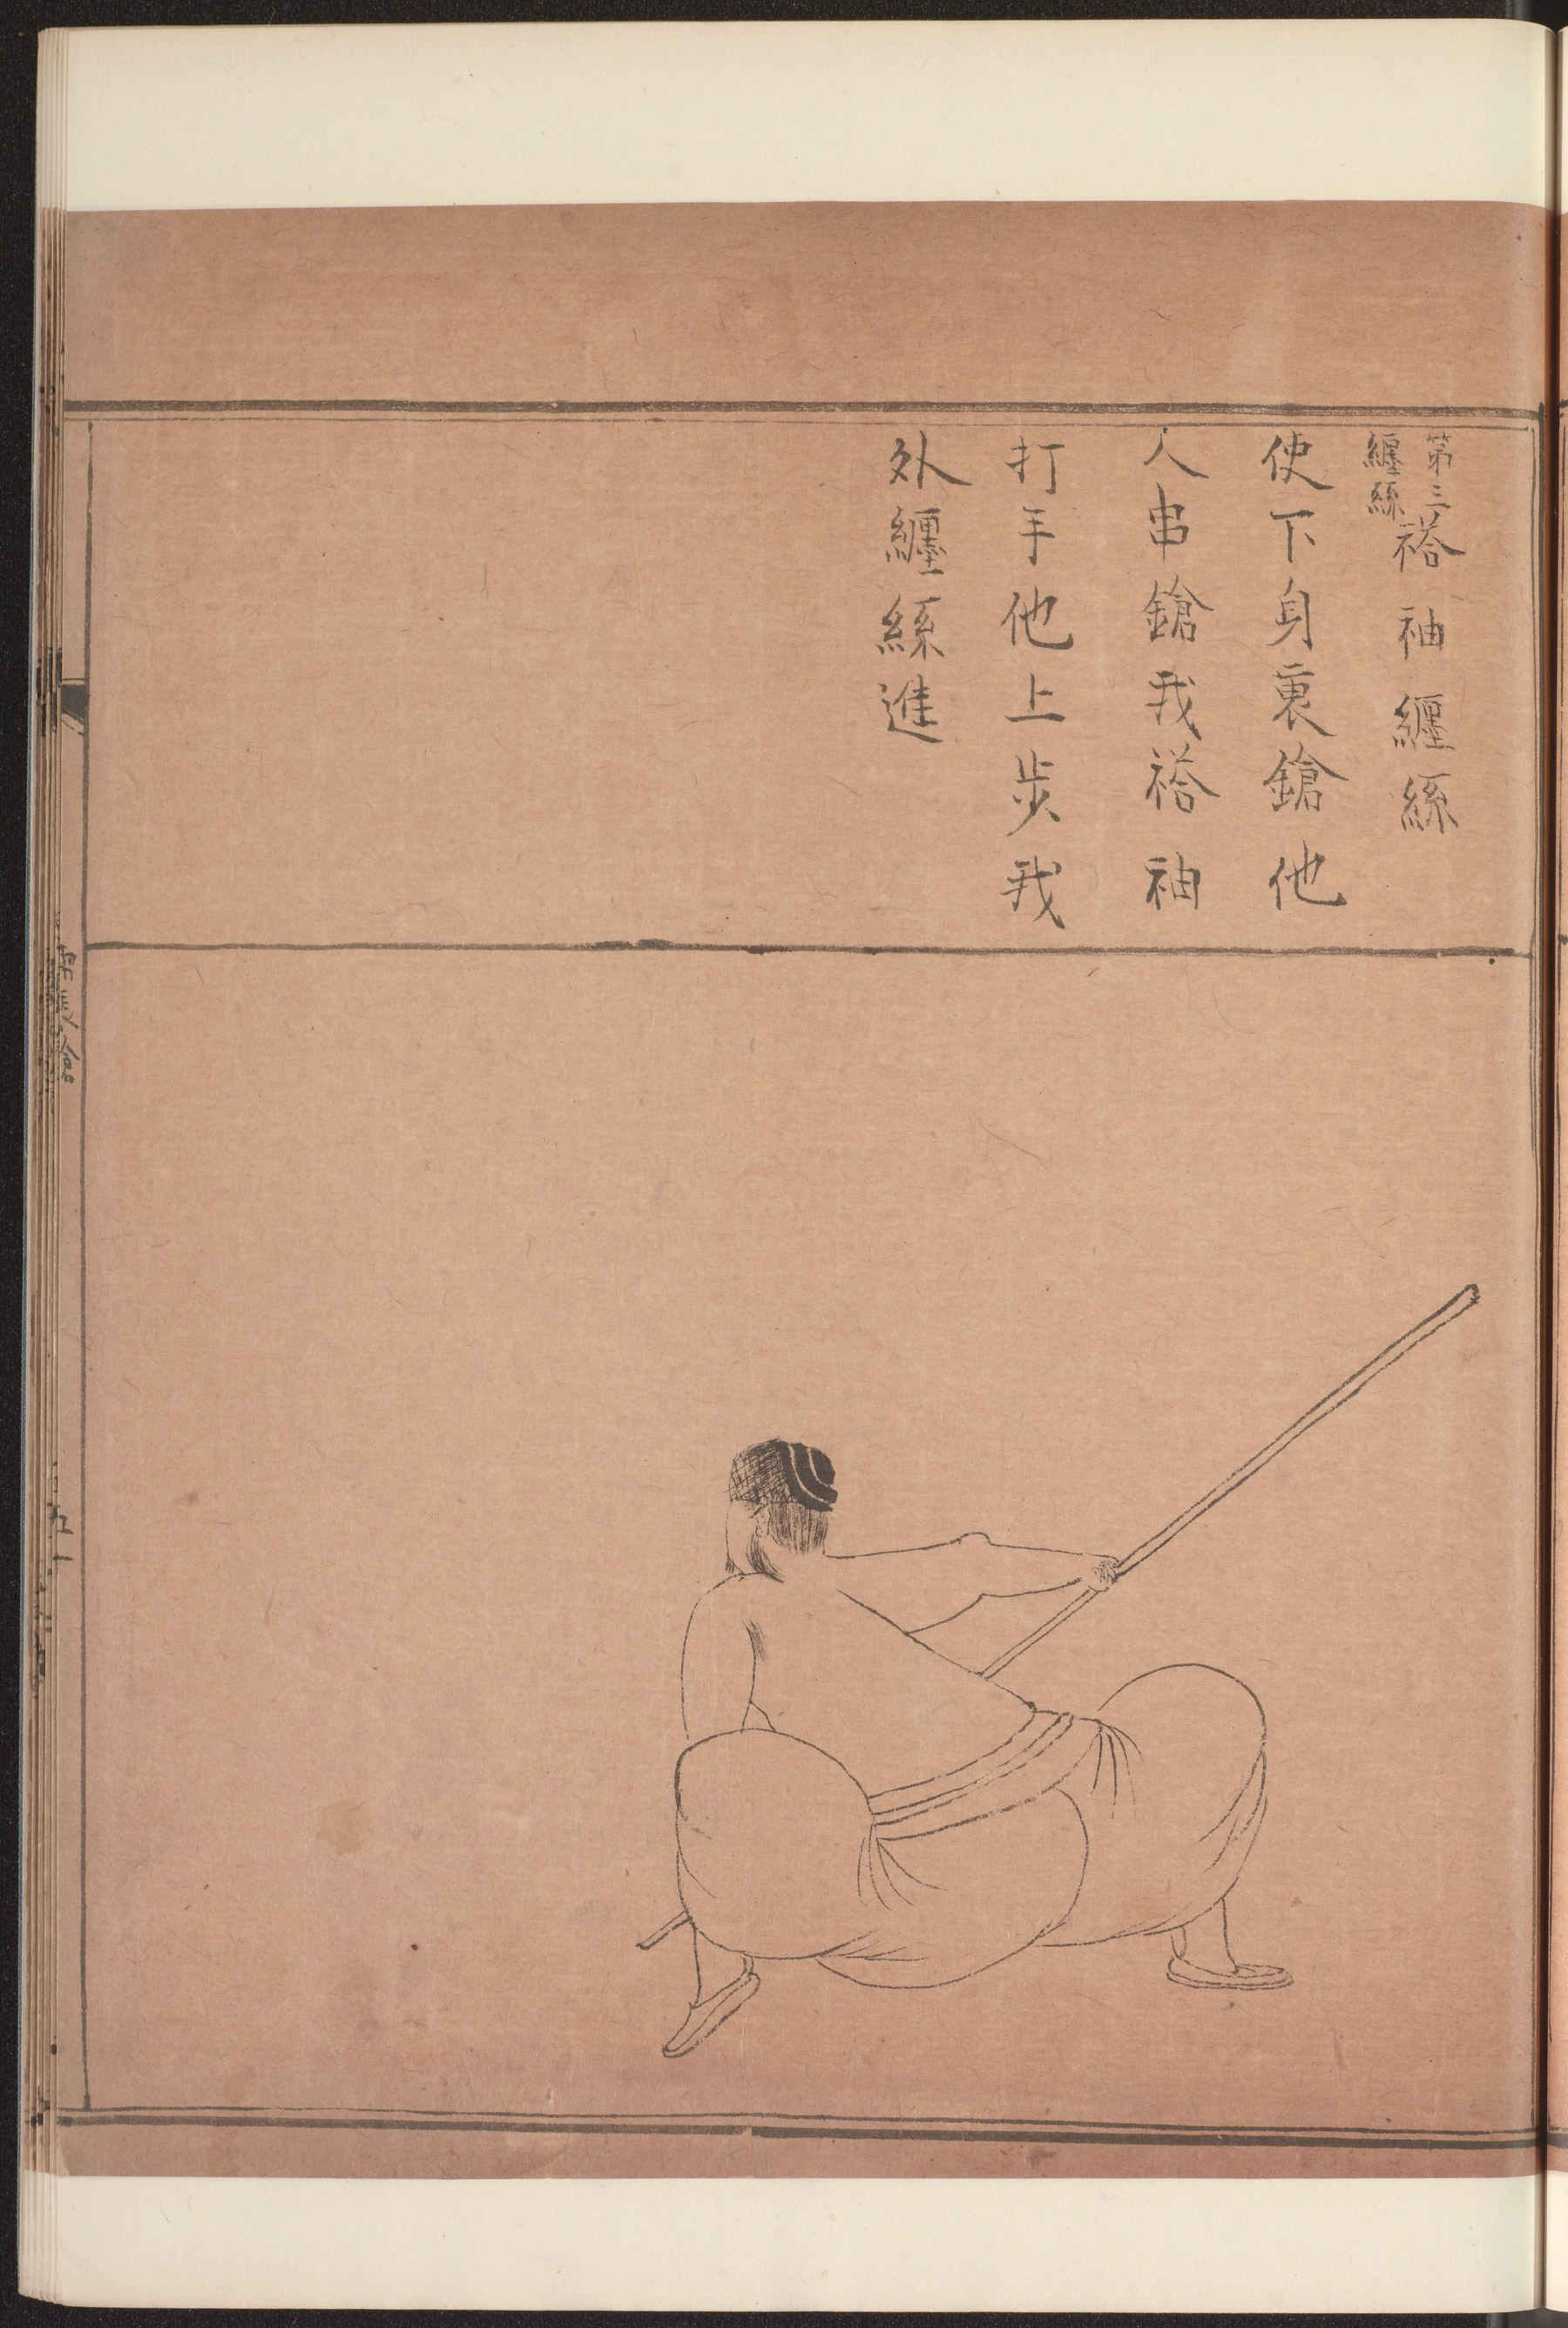 第三
纏絲
褡袖纏絲
使下身裏鎗他
人串鎗我褡袖
打手他上步我
外纏絲進